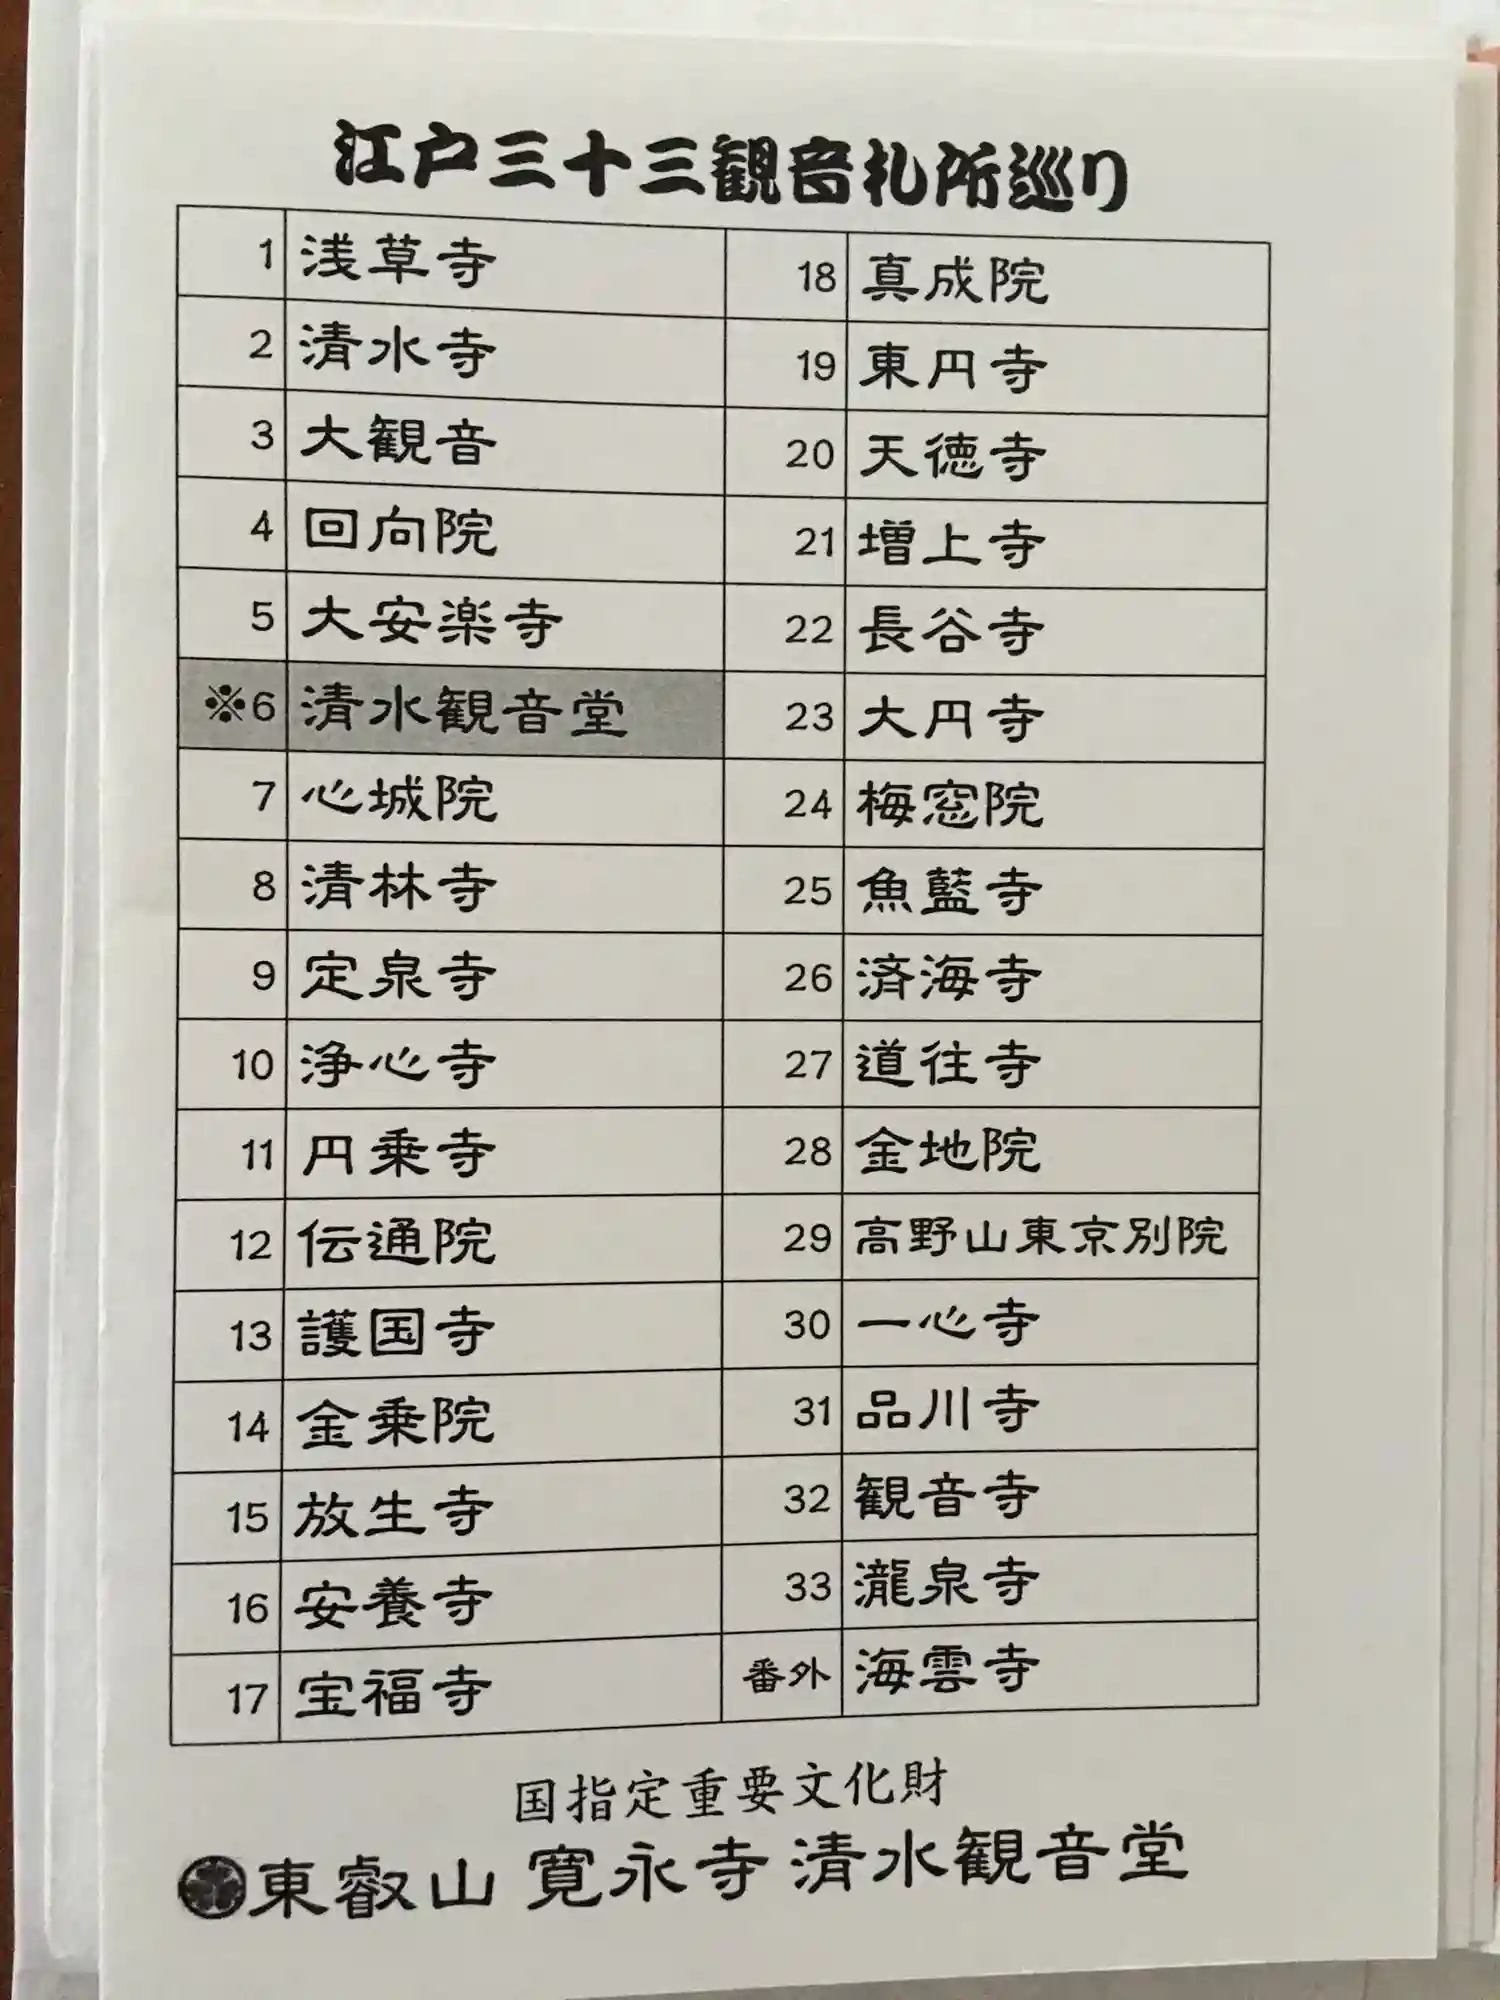 江戸三十三観音札所巡り
1 浅草寺
2 清水寺
3 大観音
4 回向院
5 大安楽寺
※6 清水観音堂
7 心城院
8 清林寺
9 定泉寺
10 浄心寺
11 円乗寺
12 伝通院
13 護国寺
14 金乗院
15 放生寺
16 安養寺
17 宝福寺
18 真成院
19 東円寺
20 天徳寺
21 増上寺
22 長谷寺
23 大円寺
24 梅窓院
25 魚藍寺
26 済海寺
27 道往寺
28 金地院
29 高野山東京別院
30 一心寺
31 品川寺
32 観音寺
33 瀧泉寺
番外 海雲寺
国指定重要文化財
東叡山 寛永寺 清水観音堂